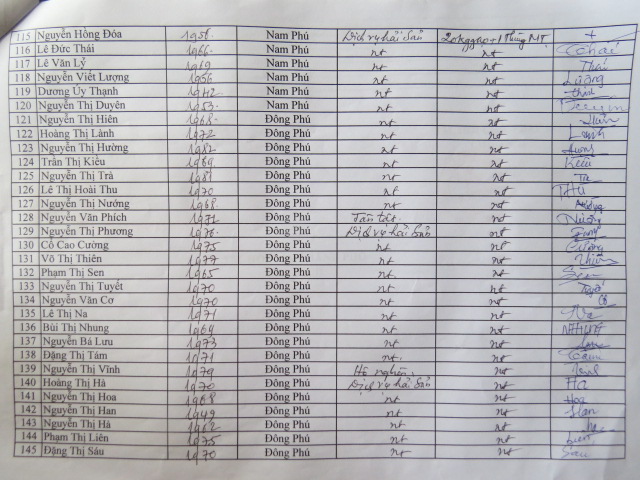 115 Nguyễn Hồng Đóa 1956 Nam Phú Dịch vụ hải sản 20kg gạo + 1 thùng MT +
116 Lê Đức Thái 1966 Nam Phú nt nt
117 Lê Văn Lý 1969 Nam Phú nt nt
118 Nguyễn Viết Lượng 1956 Nam Phú nt nt Lượng
119 Dương Úy Thạnh 1942 Nam Phú nt nt
120 Nguyễn Thị Duyên 1953 Nam Phú nt nt
121 Nguyễn Thị Hiên 1968 Đông Phú nt nt
122 Hoàng Thị Lành 1972 Đông Phú nt nt Lành
123 Nguyễn Thị Hường 1982 Đông Phú nt nt Hường
124 Trần Thị Kiều 1969 Đông Phú nt nt Kiều
125 Nguyễn Thị Trà 1981 Đông Phú nt nt Trà
126 Lê Thị Hoài Thu 1970 Đông Phú nt nt THU
127 Nguyễn Thị Nướng 1968 Đông Phú nt nt
128 Nguyễn Văn Phích 1971 Đông Phú nt
129 Nguyễn Thị Phương 1976 Đông Phú Dịch vụ hải sản nt
130 Cổ Cao Cường 1975 Đông Phú nt nt Cường
131 Võ Thị Thiên 1977 Đông Phú nt nt
132 Phạm Thị Sen 1965 Đông Phú nt nt Sen
133 Nguyễn Thị Tuyết 1970 Đông Phú nt nt
134 Nguyễn Văn Cơ 1970 Đông Phú nt nt
135 Lê Thị Na 1971 Đông Phú nt nt Na
136 Bùi Thị Nhung 1964 Đông Phú nt nt NHUNG
137 Nguyễn Bá Lưu 1973 Đông Phú nt nt
138 Đặng Thị Tám 1971 Đông Phú nt nt
139 Nguyễn Thị Vĩnh 1979 Đông Phú Hộ nghèo nt
140 Hoàng Thị Hà 1970 Đông Phú Dịch vụ hải sản nt Hà
141 Nguyễn Thị Hoa 1968 Đông Phú nt nt Hoa
142 Nguyễn Thị Han 1949 Đông Phú nt nt Han
143 Nguyễn Thị Há 1962 Đông Phú nt nt
144 Phạm Thị Liên 1975 Đông Phú nt nt
145 Đặng Thị Sáu 1970 Đông Phú nt nt Sáu